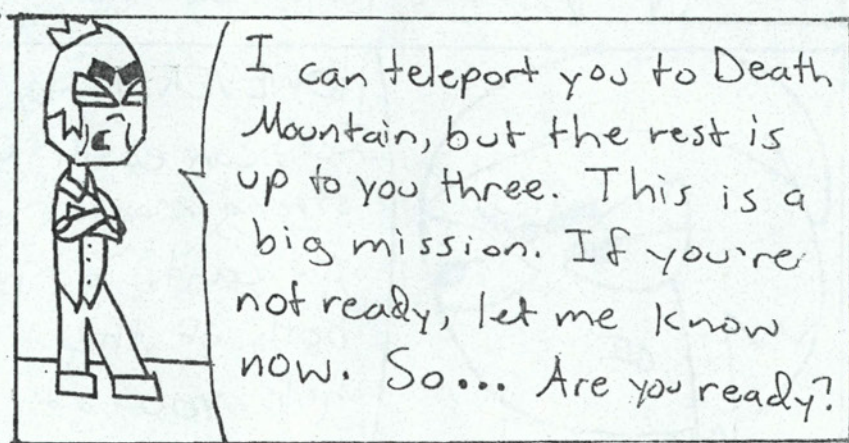 I can teleport you to Death
Mountain, but the rest is
up to you three. This is a
big mission. If you're
not ready, let me know
now. So... Are you ready?